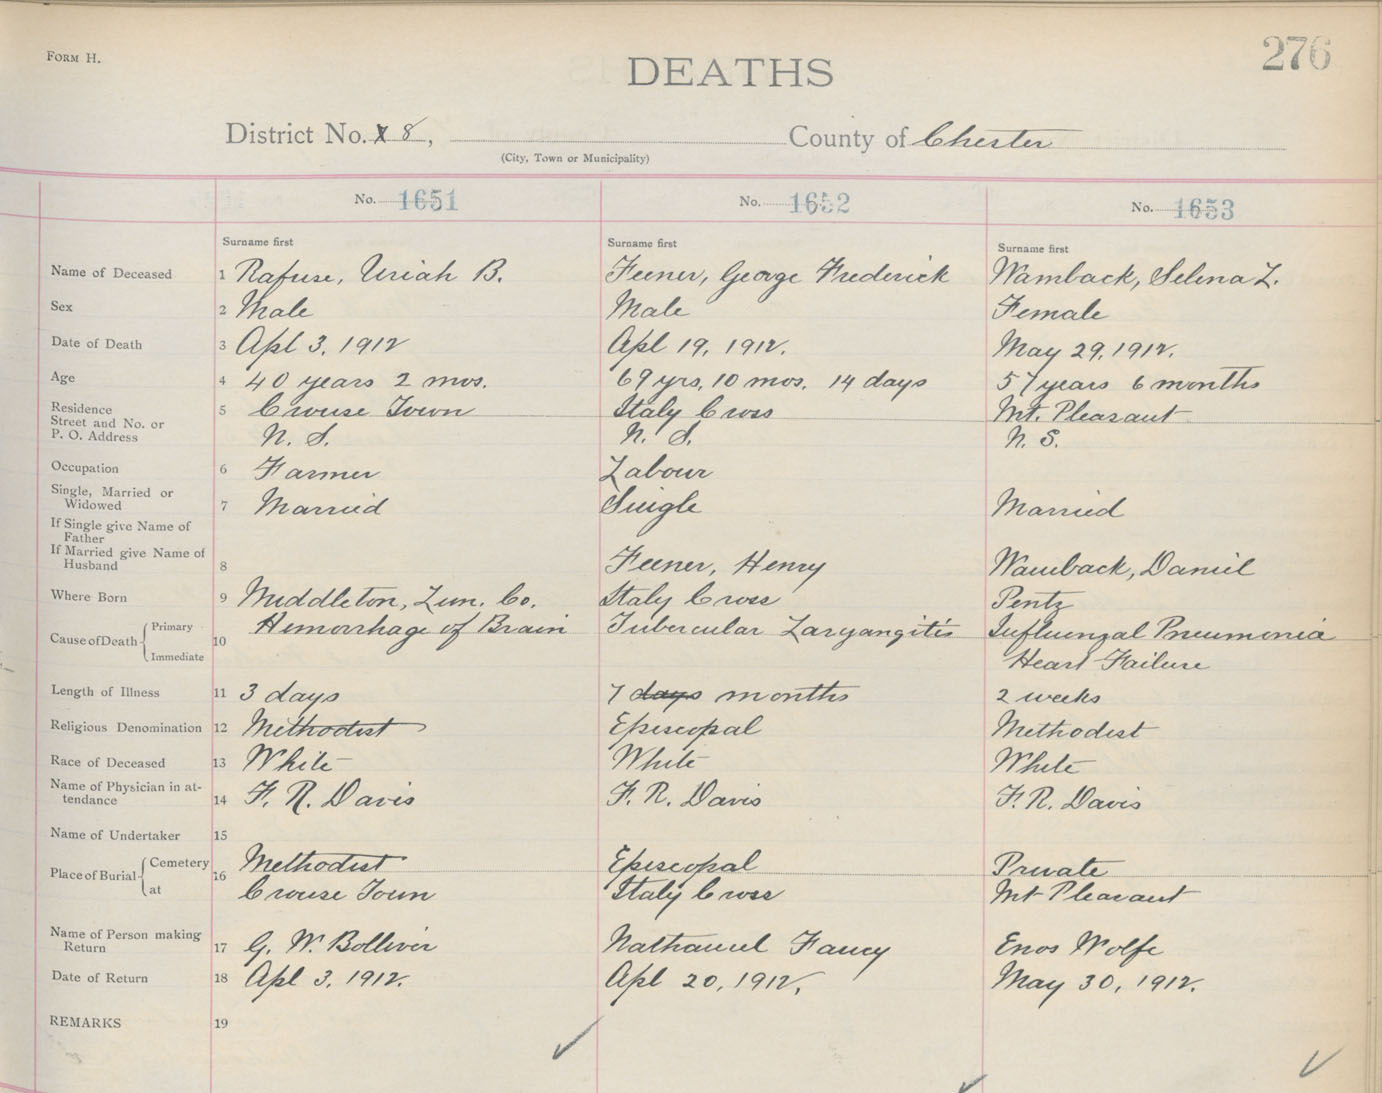 FORM H.
276
DEATHS
District No. 8, County of Chester
(City, Town or Municipality)
No. 1651 No. 1652 No. 1653
Surname first Surname first Surname first
Name of Deceased 1 Rafuse, Uriah B. Feener, George Frederick Wamback, Selena L.
Sex 2 Male Male Female
Date of Death 3 Apl 3, 1912 Apl 19, 1912. May 29, 1912.
Age 4 40 years 2 mos. 69 yrs, 10 mos. 14 days 57 years 6 months
Residence 5 Crouse Town Italy Cross Mt. Pleasant
Street and No. or
P. O. Address N. S. N. S. N. S.
Occupation 6 Farmer Labour
Single, Married or
Widowed 7 Married Single Married
If Single give Name of
Father
If Married give Name of
Husband 8 Feener, Henry Wamback, Daniel
Where Born 9 Middleton, Lun. Co. Italy Cross Pentz
Cause of Death Primary 10 Hemorrhage of Brain Tubercular Laryangitis Influenzal Pneumonia
Immediate Heart Failure
Length of Illness 11 3 days 7 days months 2 weeks
Religious Denomination 12 Methodist Episcopal Methodist
Race of Deceased 13 White White White
Name of Physician in at-
tendance 14 F. R. Davis F. R. Davis F. R. Davis
Name of Undertaker 15
Place of Burial Cemetery 16 Methodist Episcopal Private
at Crouse Town Italy Cross Mt Pleasant
Name of Person making
Return 17 G. W. Bolliver Nathaniel Fancy Enos Wolfe
Date of Return 18 Apl 3, 1912. Apl 20, 1912, May 30, 1912.
REMARKS 19